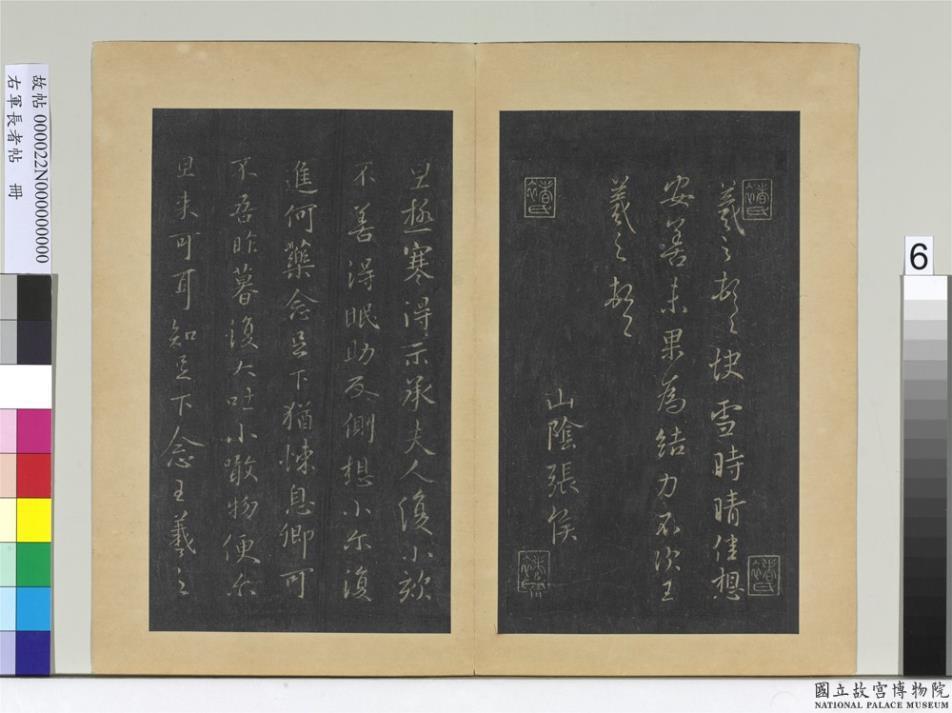 羲之頓首快雪時晴佳想
安善未果為結力不次王
羲之頓首
山陰張侯
旦極寒得示承夫人復小欬
不善得眠助反側想小尔復
進何藥念足下猶悚息卿可
不吾昨暮復大吐小噉物便尔
旦来可耳知足下念王羲之
故帖 000022N000000000
右軍長者帖 冊
6
國立故宮博物院
NATIONAL PALACE MUSEUM